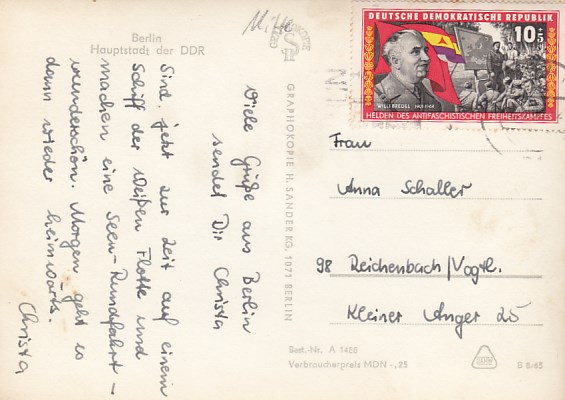 Berlin
Hauptstadt der DDR
Viele Grüße aus Berlin
sendet Dir Christa
Sind jetzt zur Zeit auf einem
Schiff der Weißen Flotte und
machen eine Seen-Rundfahrt –
wunderschön. Morgen geht es
dann wieder heimwärts.
Christa
GRAPHOKOPIE H. SANDER KG, 1071 BERLIN
DEUTSCHE DEMOKRATISCHE REPUBLIK
10+5
WILLI BREDEL
HELDEN DES ANTIFASCHISTISCHEN FREIHEITSKAMPFES
Frau
Anna Schaller
98 Reichenbach/Vogtl.
Kleiner Anger 25
Best.-Nr. A 1488
Verbraucherpreis MDN -,25
B 5/65